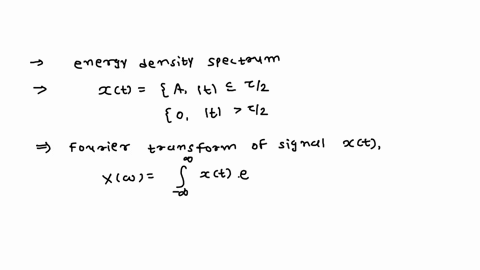 → energy density spectrum
⇒ x(t) = { A, |t| ≤ τ/2
{ 0, |t| > τ/2
⇒ Fourier transform of signal x(t),
X(ω) = ∫_{-∞}^{∞} x(t) . e